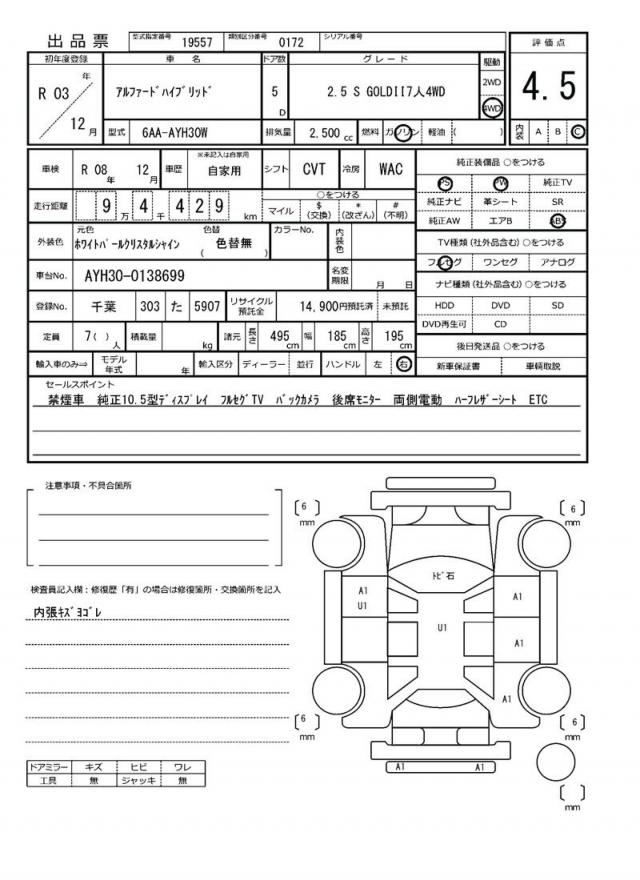 出品票 型式指定番号 19557 類別区分番号 0172 シリアル番号
初年度登録 車名 ドア数 グレード 駆動 評価点
R 03 年 12 月 アルファードハイブリッド 5 D 2.5 S GOLDII7人4WD 2WD 4WD 4.5
型式 6AA-AYH30W 排気量 2,500 cc 燃料 ガソリン 軽油 ( ) 内装 A B C
車検 R 08 年 12 月 車歴 ※未記入は自家用 自家用 シフト CVT 冷房 WAC
走行距離 9 万 4 千 4 2 9 km ○をつける マイル $ (交換) * (改ざん) # (不明)
外装色 元色 ホワイトパールクリスタルシャイン 色替 ( 色替無 ) カラーNo. 内装色
車台No. AYH30-0138699 名変期限 月 日
登録No. 千葉 303 た 5907 リサイクル預託金 14,900円預託済 未預託
定員 7( ) 人 積載量 kg 諸元 長さ 495 cm 幅 185 cm 高さ 195 cm
輸入車のみ⇒ モデル年式 年 輸入区分 ディーラー 並行 ハンドル 左 右
純正装備品 ○をつける
PS PW 純正TV
純正ナビ 革シート SR
純正AW エアB ABS
TV種類(社外品含む) ○をつける
フルセグ ワンセグ アナログ
ナビ種類(社外品含む) ○をつける
HDD DVD SD
DVD再生可 CD
後日発送品 ○をつける
新車保証書 車輌取説
セールスポイント
禁煙車 純正10.5型ディスプレイ フルセグTV バックカメラ 後席モニター 両側電動 ハーフレザーシート ETC
注意事項・不具合箇所
検査員記入欄:修復歴「有」の場合は修復箇所・交換箇所を記入
内張キズヨゴレ
ドアミラー キズ ヒビ ワレ
工具 無 ジャッキ 無
6 mm
6 mm
トビ石
A1
U1
A1
U1
A1
A1
6 mm
6 mm
A1 A1
mm